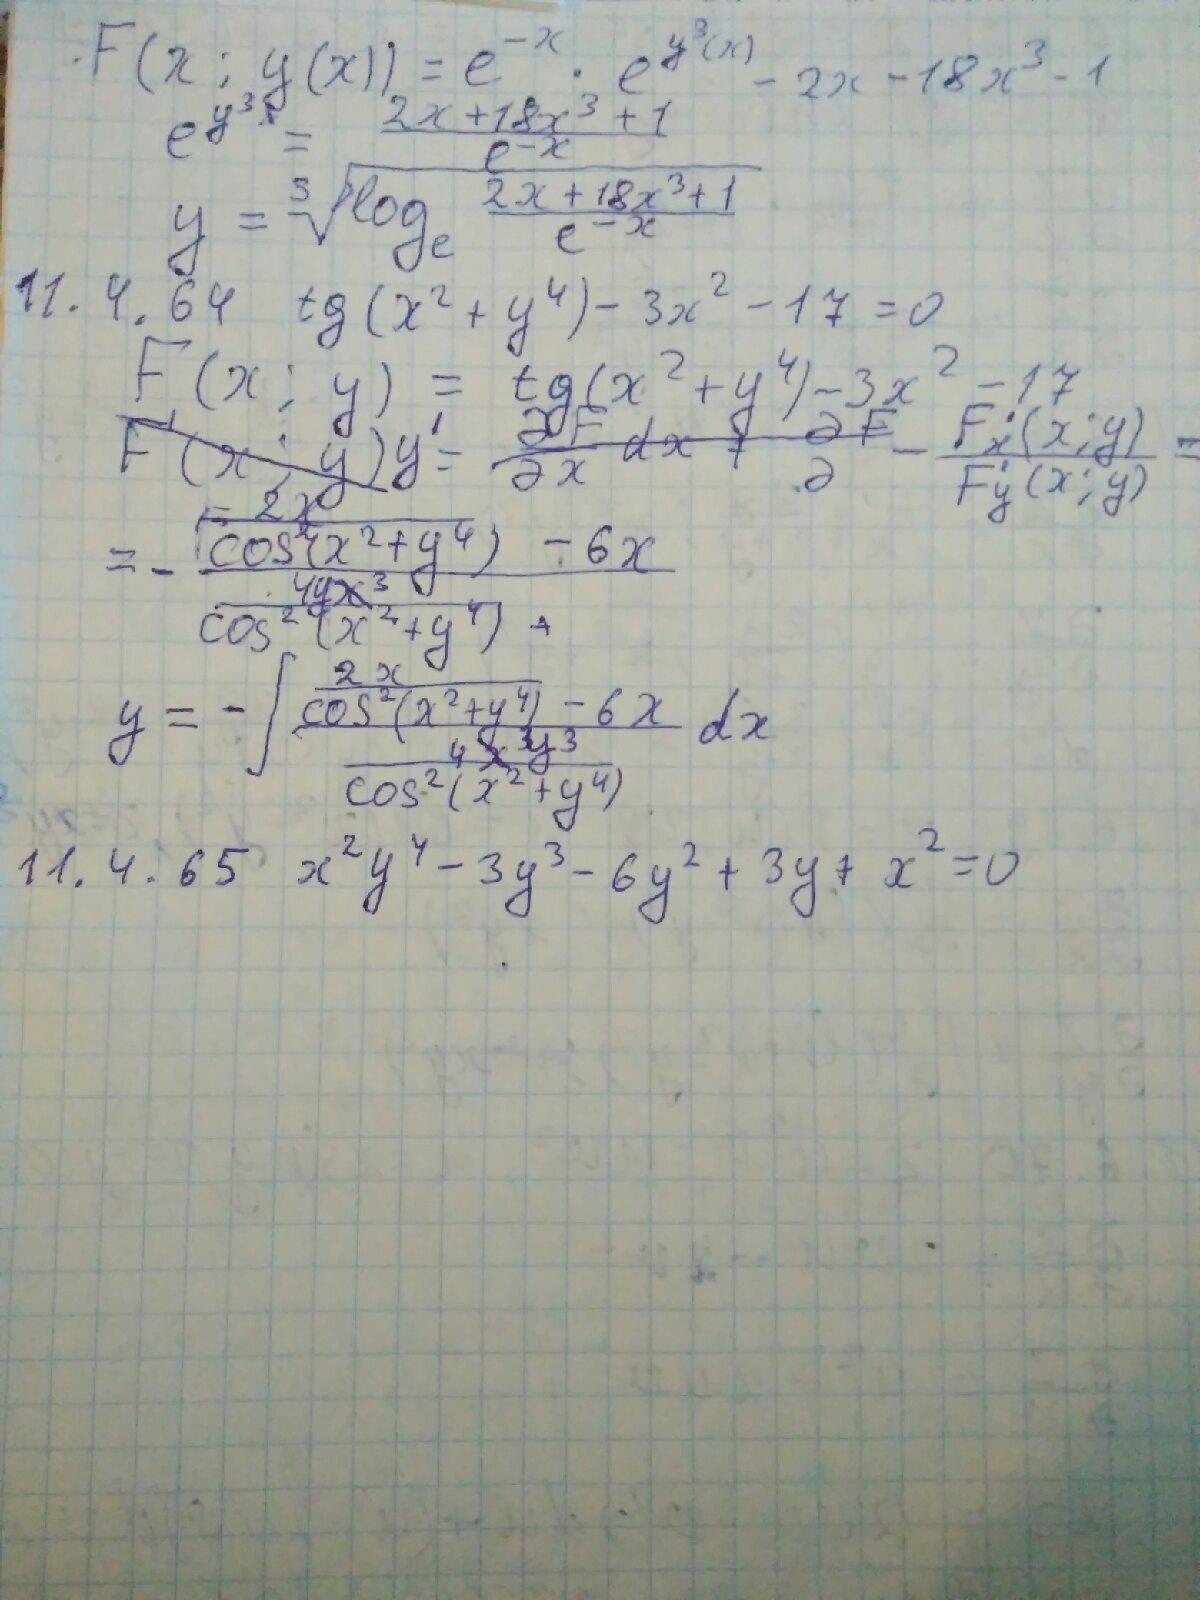 F(x; y(x)) = e^{-x} · e^{y^3(x)} - 2x - 18x^3 - 1
e^{y^3} = \frac{2x+18x^3+1}{e^{-x}}
y = \sqrt[3]{log_e \frac{2x+18x^3+1}{e^{-x}}}
11.4.64 tg(x^2+y^4)-3x^2-17=0
F(x; y) = tg(x^2+y^4)-3x^2-17
F'(x; y) y' = \frac{∂F}{∂x} dx + \frac{∂F}{∂} - \frac{F'_x(x;y)}{F'_y(x;y)} =
= - \frac{\frac{2x}{cos^2(x^2+y^4)} - 6x}{\frac{4y^3}{cos^2(x^2+y^4)}}
y = - ∫ \frac{\frac{2x}{cos^2(x^2+y^4)} - 6x}{\frac{4y^3}{cos^2(x^2+y^4)}} dx
11.4.65 x^2y^4 - 3y^3 - 6y^2 + 3y + x^2 = 0